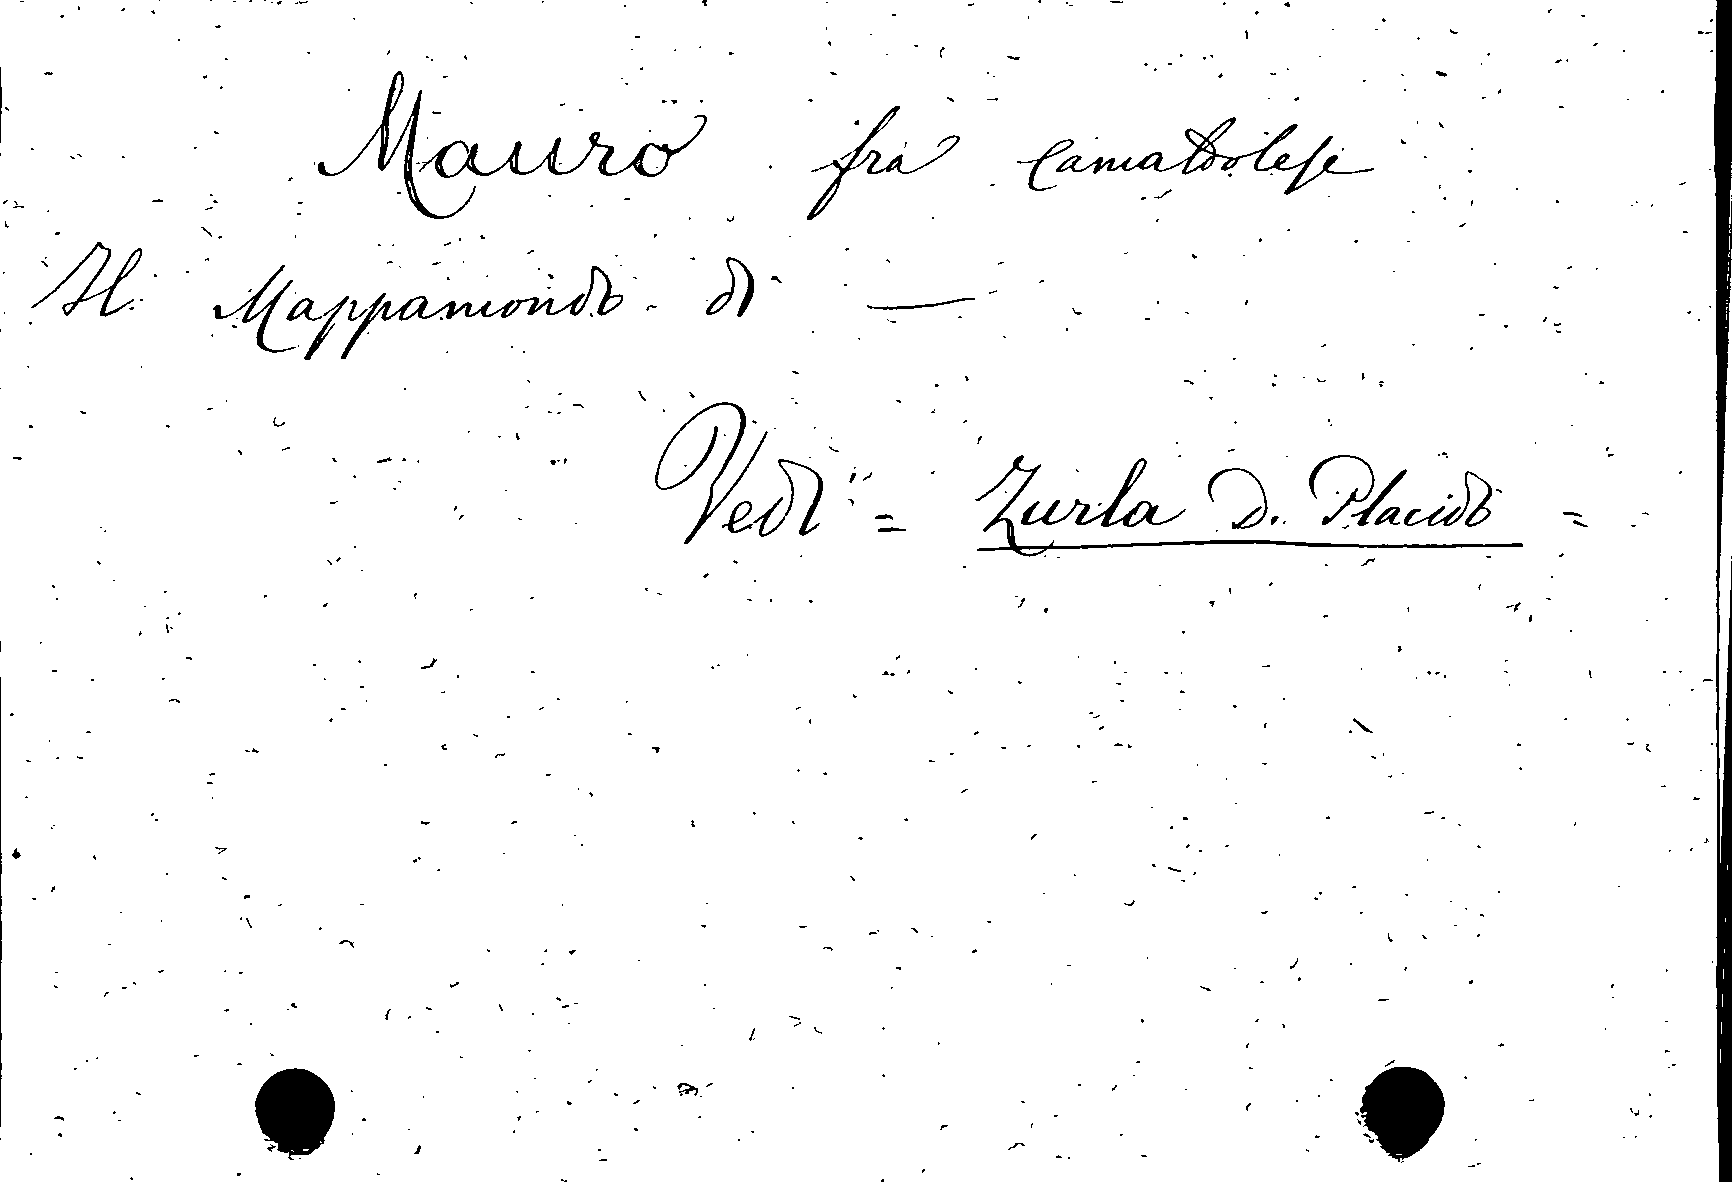 Mauro fra Camaldolese
Il Mappamondo di —
Vedi = Zurla D. Placido =